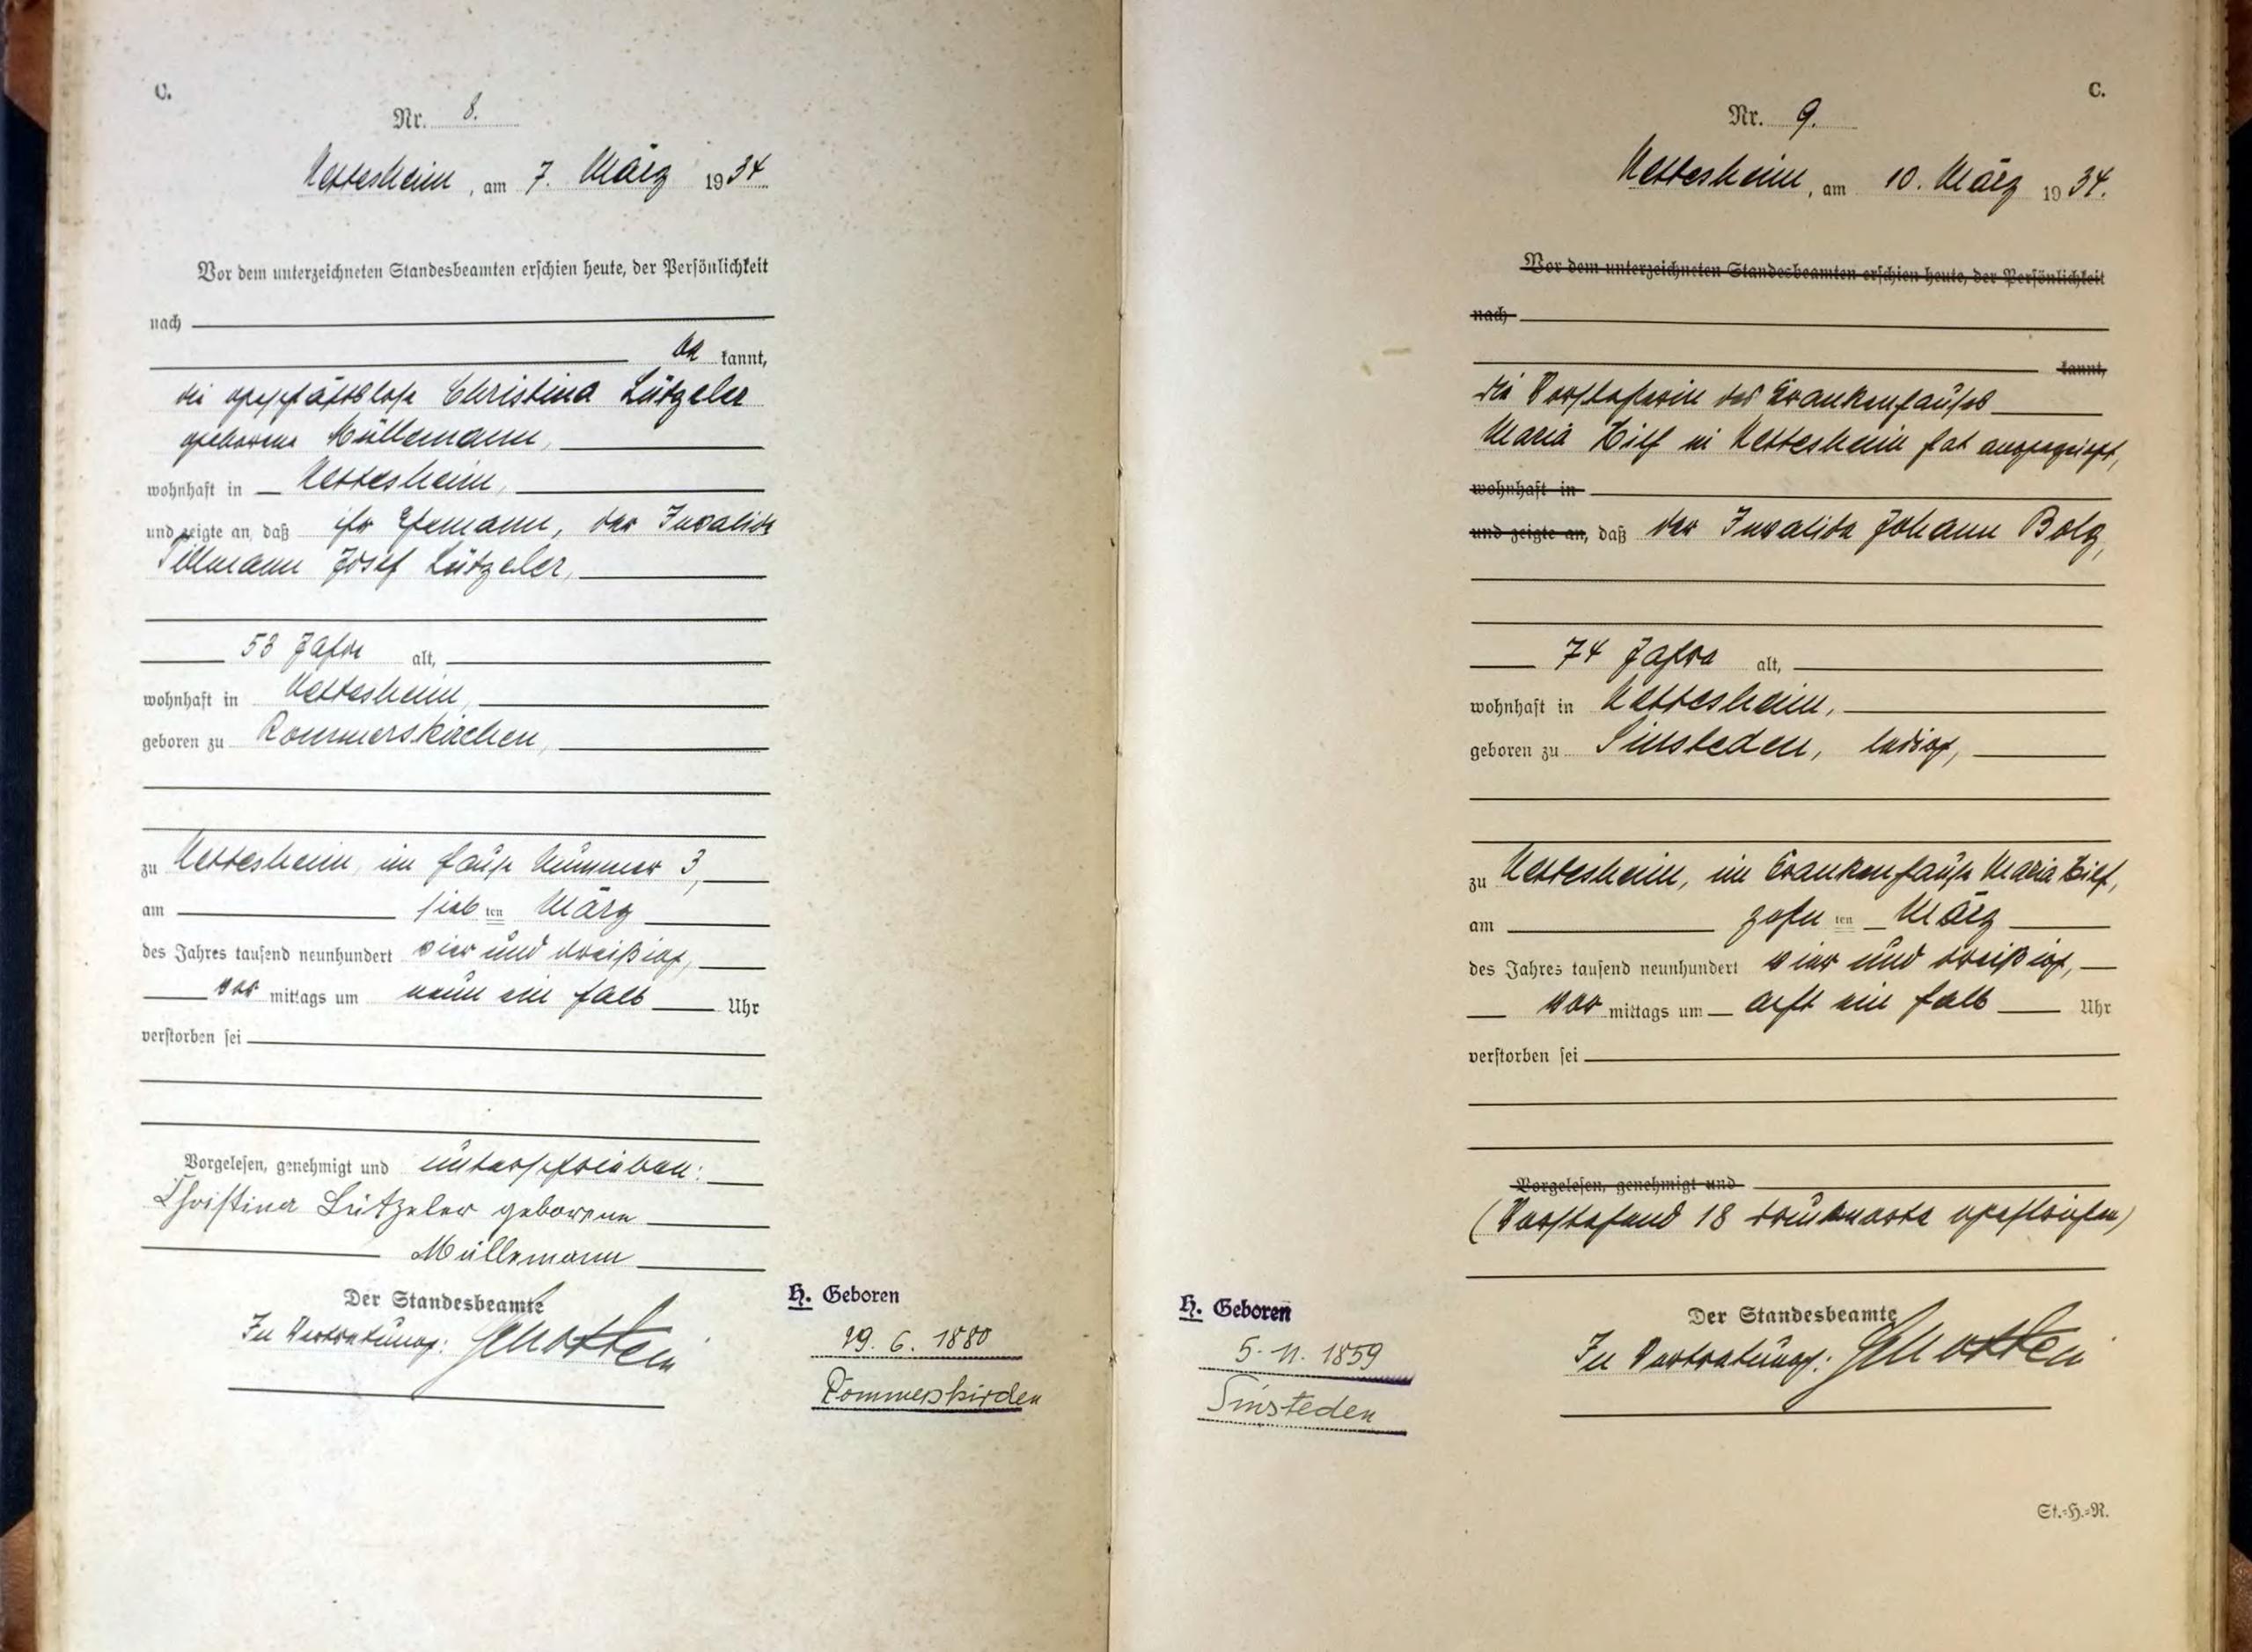 C.
Nr. 8.
Nettesheim, am 7. März 1934.
Vor dem unterzeichneten Standesbeamten erschien heute, der Persönlichkeit
nach
be kannt,
die geschäftslose Christina Lützeler
geborene Müllemann,
wohnhaft in Nettesheim,
und zeigte an, daß ihr Ehemann, der Invalide
Tillmann Josef Lützeler,
53 Jahre alt,
wohnhaft in Nettesheim,
geboren zu Rommerskirchen,
zu Nettesheim, im Hause Nummer 3,
am sieb ten März
des Jahres tausend neunhundert vier und dreißig,
vor mittags um neun ein halb Uhr
verstorben sei
Vorgelesen, genehmigt und unterschrieben:
Christina Lützeler geborene
Müllemann
Der Standesbeamte
In Vertretung:
H. Geboren
29. 6. 1880
Rommerskirchen
C.
Nr. 9.
Nettesheim, am 10. März 1934.
Vor dem unterzeichneten Standesbeamten erschien heute, der Persönlichkeit
nach
kannt,
die Vorsteherin des Krankenhauses
Maria Hilf in Nettesheim hat angezeigt,
wohnhaft in
und zeigte an, daß der Invalide Johann Bolg,
74 Jahre alt,
wohnhaft in Nettesheim,
geboren zu Sinsteden, ledig,
zu Nettesheim, im Krankenhause Maria Hilf,
am zehn ten März
des Jahres tausend neunhundert vier und dreißig,
vor mittags um acht ein halb Uhr
verstorben sei
Vorgelesen, genehmigt und
(Vorstehend 18 Druckworte gestrichen)
Der Standesbeamte
In Vertretung:
H. Geboren
5. 11. 1859
Sinsteden
St.=H.=R.